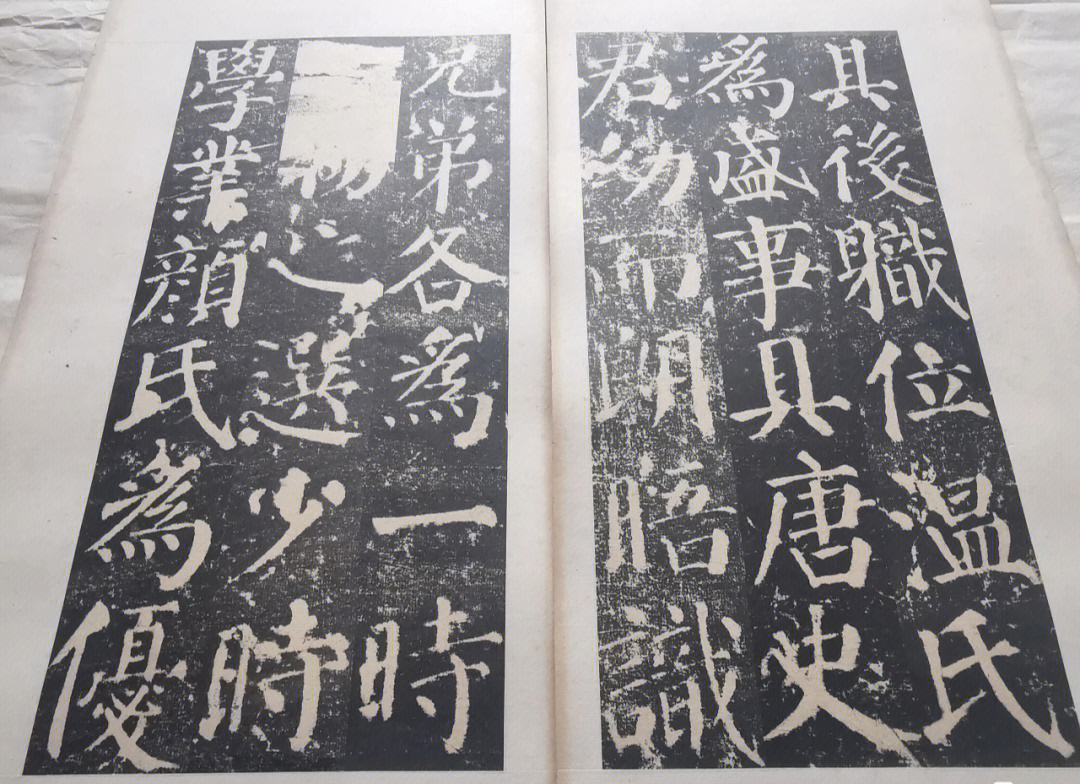 兄弟各爲一時
物之選少時
學業顔氏爲優
其後職位温氏
爲盛事具唐史
君幼而朗晤識